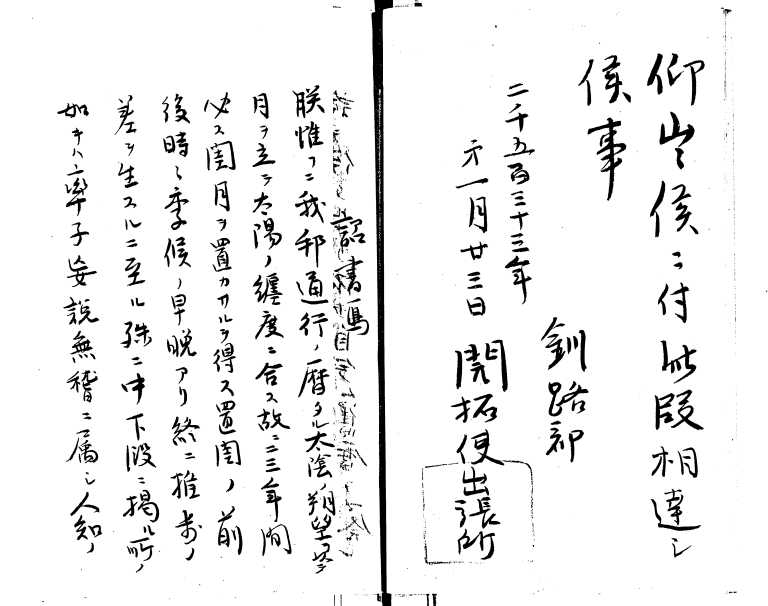 仰出候ニ付此段相達シ
候事
二千五百三十三年
一月廿三日
釧路郡
開拓使出張所
詔書写
朕惟フニ我邦通行ノ暦タル太陰ノ朔望ヲ以テ
月ヲ立テ太陽ノ纏度ニ合ス故ニ二三年間
必ス閏月ヲ置カサルヲ得ス置閏ノ前
後時ニ季候ノ早晩アリ終ニ推歩ノ
差ヲ生スルニ至ル殊ニ中下段ニ掲ル所ノ
如キハ率子妄説無稽ニ属シ人知ノ